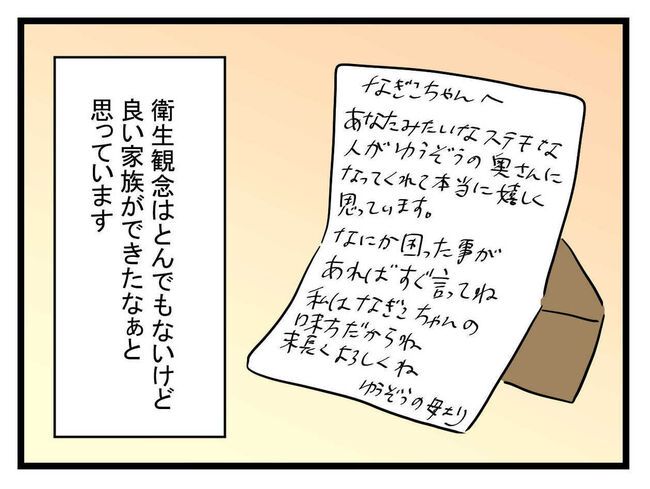 衛生観念はとんでもないけど
良い家族ができたなぁと
思っています
なぎこちゃんへ
あなたみたいなステキな
人がゆうぞうの奥さんに
なってくれて本当に嬉しく
思っています。
なにか困った事が
あればすぐ言ってね
私はなぎこちゃんの
味方だからね
末長くよろしくね
ゆうぞうの母より